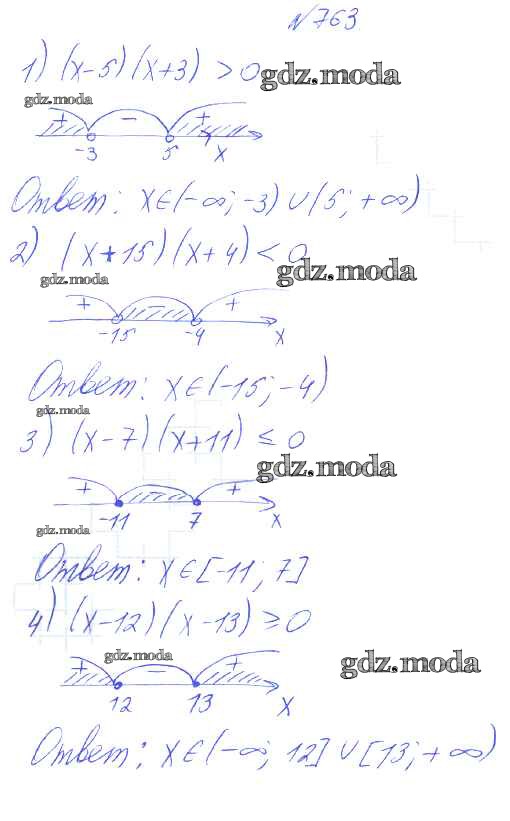 №763
1) (x-5)(x+3) > 0 gdz.moda
gdz.moda
+ - +
-3 5 x
Ответ: x∈(-∞; -3) ∪ (5; +∞)
2) (x+15)(x+4) < 0
gdz.moda gdz.moda
+ - +
-15 -4 x
Ответ: x∈(-15; -4)
gdz.moda
3) (x-7)(x+11) ≤ 0
gdz.moda
+ - +
-11 7 x
gdz.moda
Ответ: x∈[-11; 7]
4) (x-12)(x-13) ≥ 0
gdz.moda gdz.moda
+ - +
12 13 x
Ответ: x∈(-∞; 12] ∪ [13; +∞)